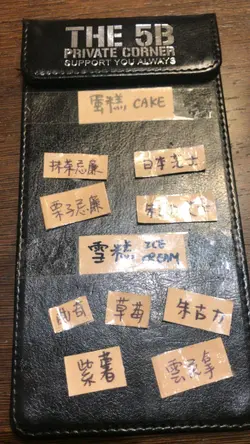 THE 5B
PRIVATE CORNER
SUPPORT YOU ALWAYS
雪糕 CAKE
抹茶忌廉
日本芝士
栗子忌廉
雪糕 ICE CREAM
草莓
朱古力
紫薯
雲呢拿